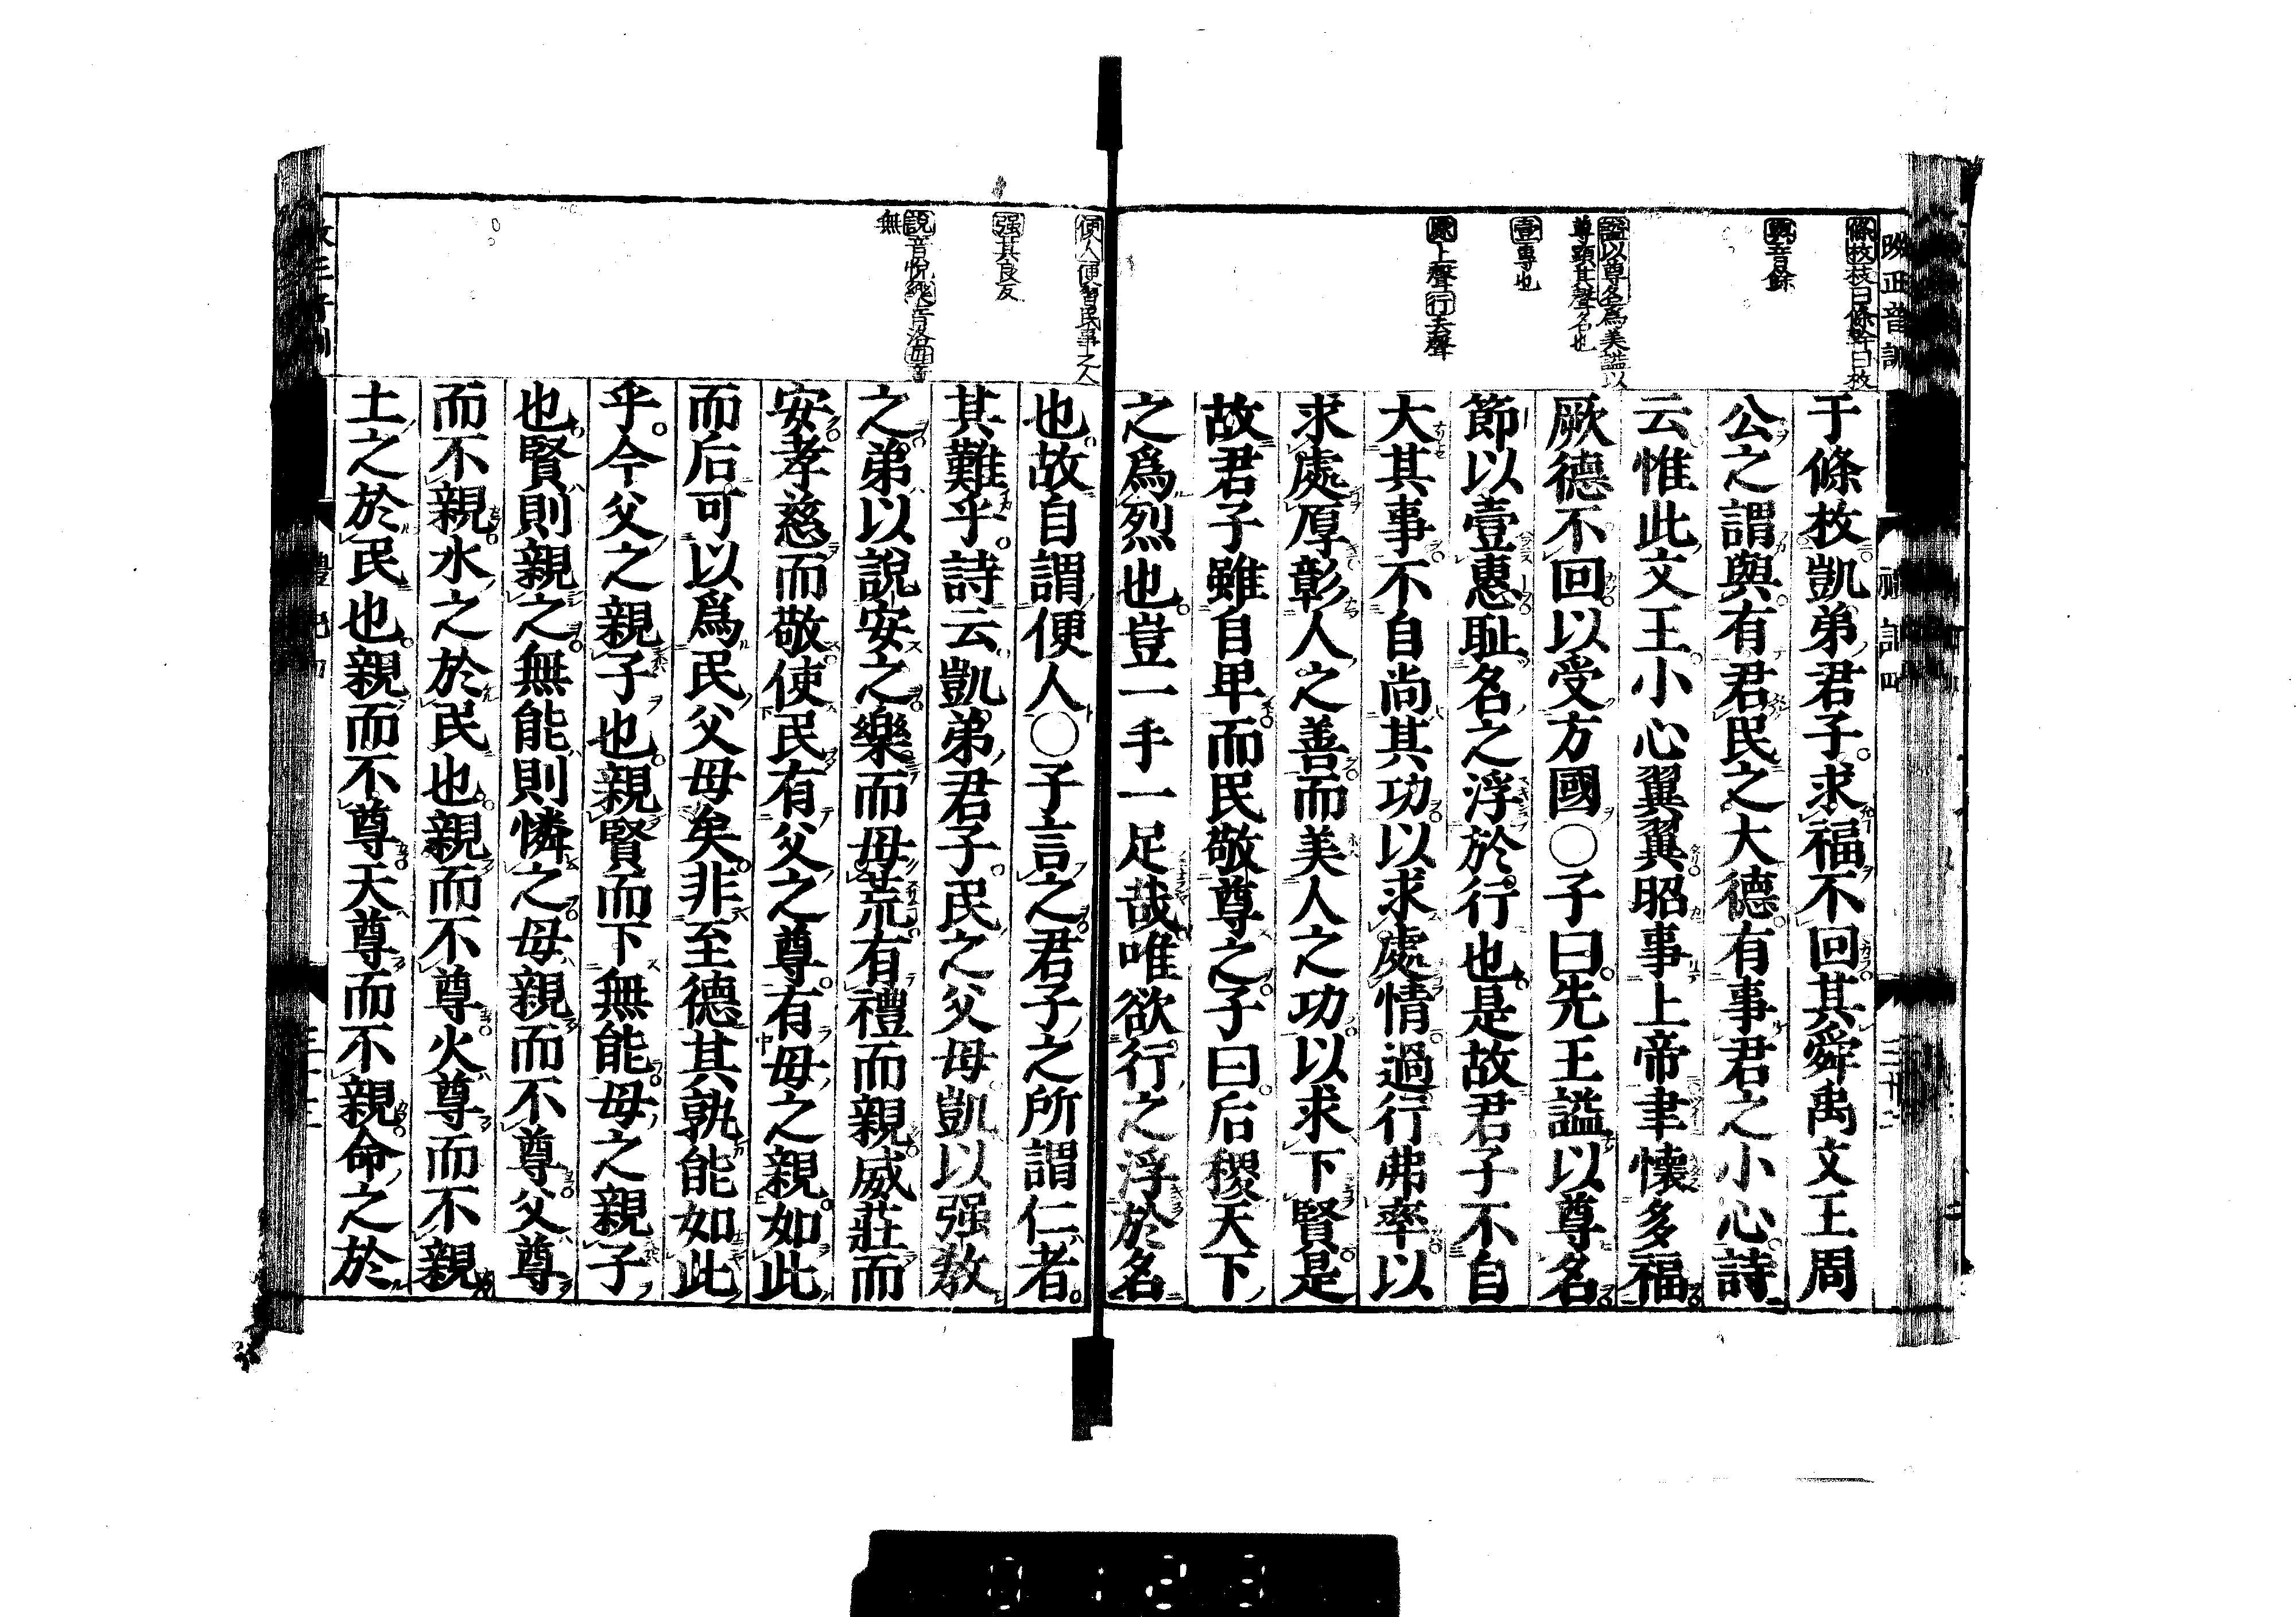 條枚枝曰條幹曰枚
與音餘
謚以尊名爲美謚以
尊顯其聲名也
壹專也
處上聲行去聲
于條枚凱弟君子求福不回其舜禹文王周
公之謂與有君民之大德有事君之小心詩
云惟此文王小心翼翼昭事上帝聿懷多福
厥德不回以受方國〇子曰先王謚以尊名
節以壹惠恥名之浮於行也是故君子不自
大其事不自尚其功以求處情過行弗率以
求處厚彰人之善而美人之功以求下賢是
故君子雖自卑而民敬尊之子曰后稷天下
之爲烈也豈一手一足哉唯欲行之浮於名
便人便習民事之人
强其良反
說音悅樂音洛毋音
無
也故自謂便人〇子言之君子之所謂仁者
其難乎詩云凱弟君子民之父母凱以强教
之弟以說安之樂而毋荒有禮而親威莊而
安孝慈而敬使民有父之尊有母之親如此
而后可以爲民父母矣非至德其孰能如此
乎今父之親子也親賢而下無能母之親子
也賢則親之無能則憐之母親而不尊父尊
而不親水之於民也親而不尊火尊而不親
土之於民也親而不尊天尊而不親命之於